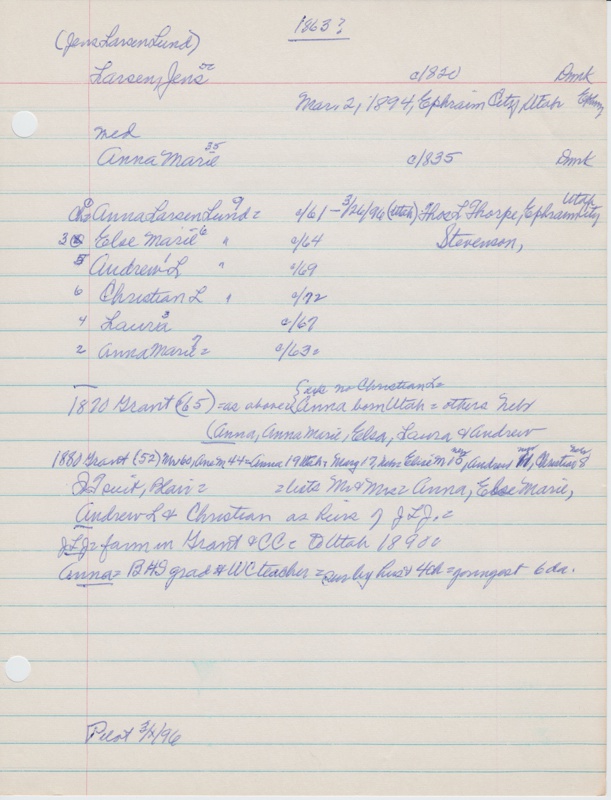 1863?
(Jens Larsen Lund)
Larsen, Jens 50 c/1820 Dmk
Mar. 2, 1894, Ephraim City, Utah
med
Anna Marie 35 c/1835 Dmk
Utah
Anna Larsen Lund 9 = c/61 - 3/26/96 (Utah) Thos L Thorpe, Ephraim City
3 Else Marie 6 " c/64 Stevenson,
5 Andrew L 1 " c/69
6 Christian L " c/72
4 Laura 3 c/67
2 Anna Marie 7 = c/63=
{ave no Christian L=
1870 Grant (65) = as above {Anna born Utah = others Nebr
(Anna, Anna Marie, Elsa, Laura & Andrew
1880 Grant (52) Mr 60, Ana M 44 = Anna 19 Utah = Mary 17, Nebr = Elsie M 15, Andrew 11, Christian 8
suit, Blair = = lists Mr & Mrs = Anna, Else Marie,
Andrew L & Christian as heirs of J L J. =
JLJ = farm in Grant & CC = to Utah 1890 =
Anna = BHS grad & WC teacher = sur by hus & 4 ch = youngest 6 da.
Pilot 3/ /96